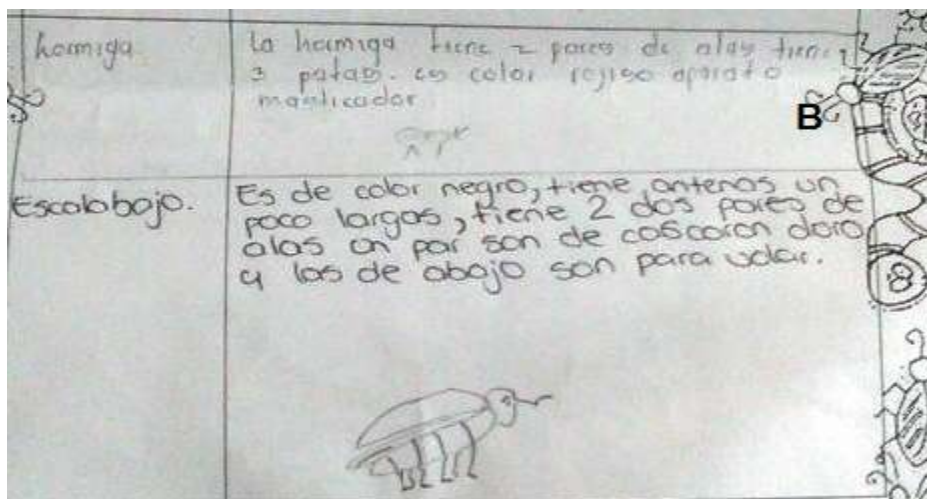 hormiga
La hormiga tiene 2 pares de alas tiene
3 patas. es color rojiso aparato
masticador
B
Escalabajo.
Es de color negro, tiene antenas un
poco largas, tiene 2 dos pares de
alas un par son de coscoron duro
y las de abajo son para volar.
8